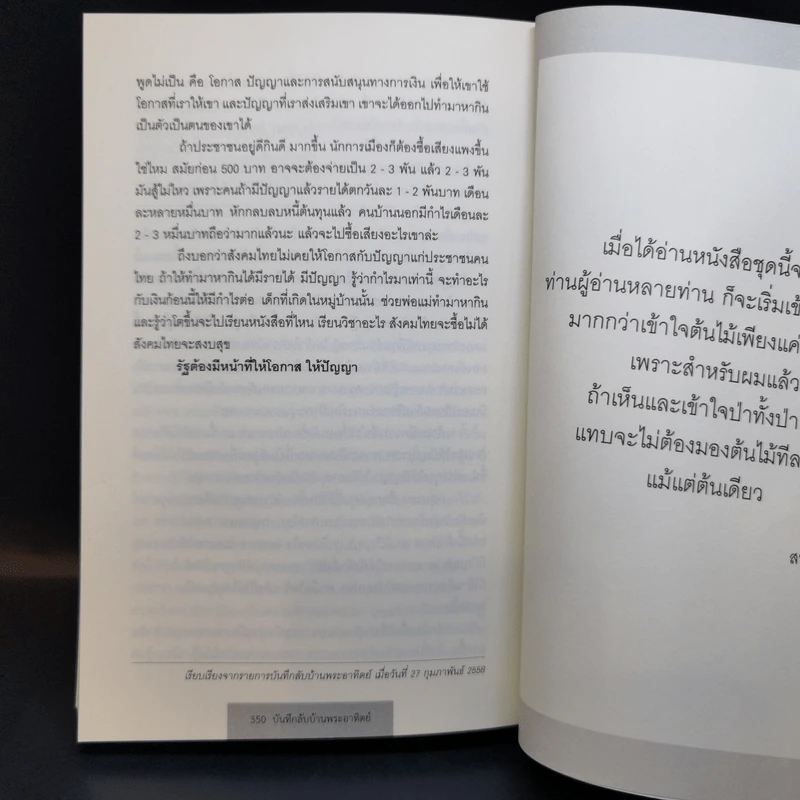 พูดไม่เป็น คือ โอกาส ปัญญาและการสนับสนุนทางการเงิน เพื่อให้เขาใช้
โอกาสที่เราให้เขา และปัญญาที่เราส่งเสริมเขา เขาจะได้ออกไปทำมาหากิน
เป็นตัวเป็นตนของเขาได้
ถ้าประชาชนอยู่ดีกินดี มากขึ้น นักการเมืองก็ต้องซื้อเสียงแพงขึ้น
ใช่ไหม สมัยก่อน 500 บาท อาจจะต้องจ่ายเป็น 2 - 3 พัน แล้ว 2 - 3 พัน
มันสู้ไม่ไหว เพราะคนถ้ามีปัญญาแล้วรายได้ตกวันละ 1 - 2 พันบาท เดือน
ละหลายหมื่นบาท หักกลบลบหนี้ต้นทุนแล้ว คนบ้านนอกมีกำไรเดือนละ
2 - 3 หมื่นบาทถือว่ามากแล้วนะ แล้วจะไปซื้อเสียงอะไรเขาล่ะ
ถึงบอกว่าสังคมไทยไม่เคยให้โอกาสกับปัญญาแก่ประชาชนคน
ไทย ถ้าให้ทำมาหากินได้มีรายได้ มีปัญญา รู้ว่ากำไรมาเท่านี้ จะทำอะไร
กับเงินก้อนนี้ให้มีกำไรต่อ เด็กที่เกิดในหมู่บ้านนั้น ช่วยพ่อแม่ทำมาหากิน
และรู้ว่าโตขึ้นจะไปเรียนหนังสือที่ไหน เรียนวิชาอะไร สังคมไทยจะซื้อไม่ได้
สังคมไทยจะสงบสุข
รัฐต้องมีหน้าที่ให้โอกาส ให้ปัญญา
เรียบเรียงจากรายการบันทึกลับบ้านพระอาทิตย์ เมื่อวันที่ 27 กุมภาพันธ์ 2558
350 บันทึกลับบ้านพระอาทิตย์
เมื่อได้อ่านหนังสือชุดนี้จ
ท่านผู้อ่านหลายท่าน ก็จะเริ่มเข้
มากกว่าเข้าใจต้นไม้เพียงแค่
เพราะสำหรับผมแล้ว
ถ้าเห็นและเข้าใจป่าทั้งป่า
แทบจะไม่ต้องมองต้นไม้ทีล
แม้แต่ต้นเดียว